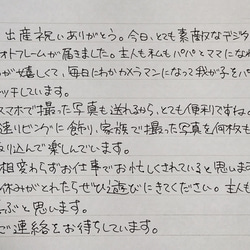 出産祝いありがとう。今日、とても素敵なデジタ
ォトフレームが届きました。主人も私もパパとママになれ
が嬉しくて、毎日にわかカメラマンになって我が子をパ
ャしています。
スマホで撮った写真も送れるから、とても便利ですね。
速リビングに飾り、家族で撮った写真を何枚も
り込んで楽しんでいます。
相変わらずお仕事でお忙しくされていると思いま
休みがとれたらぜひ遊びにきてください。主人も
ぶと思います。
ご連絡をお待ちしています。